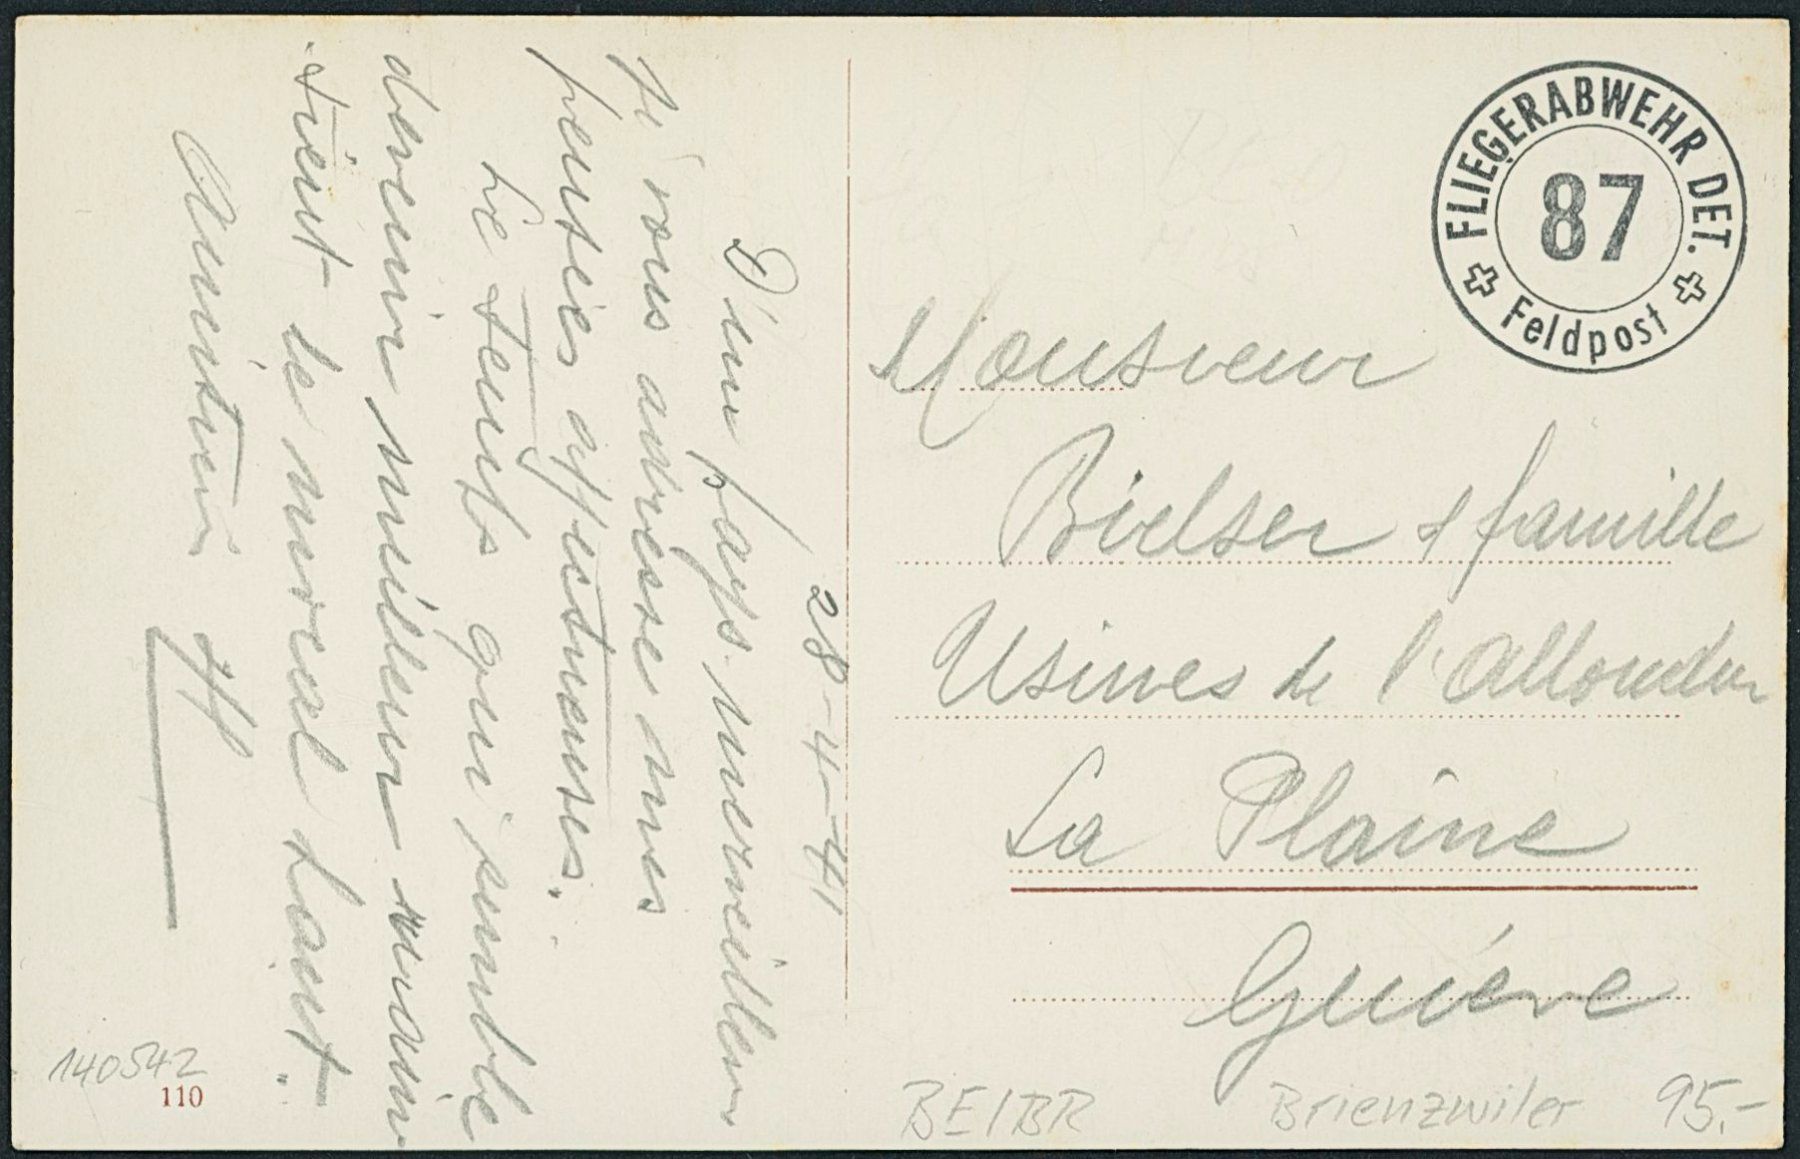 28-4-41
D'un pays merveilleux
je vous adresse mes
pensées affectueuses.
Le temps qui semble
devenir meilleur main
tient le moral haut.
Amitiés
FLIEGERABWEHR DET.
87
Feldpost
Monsieur
Bielser & famille
Usines de l'Allondon
La Plaine
Genève
140542
110
BE/BR Brienzwiler 95.-